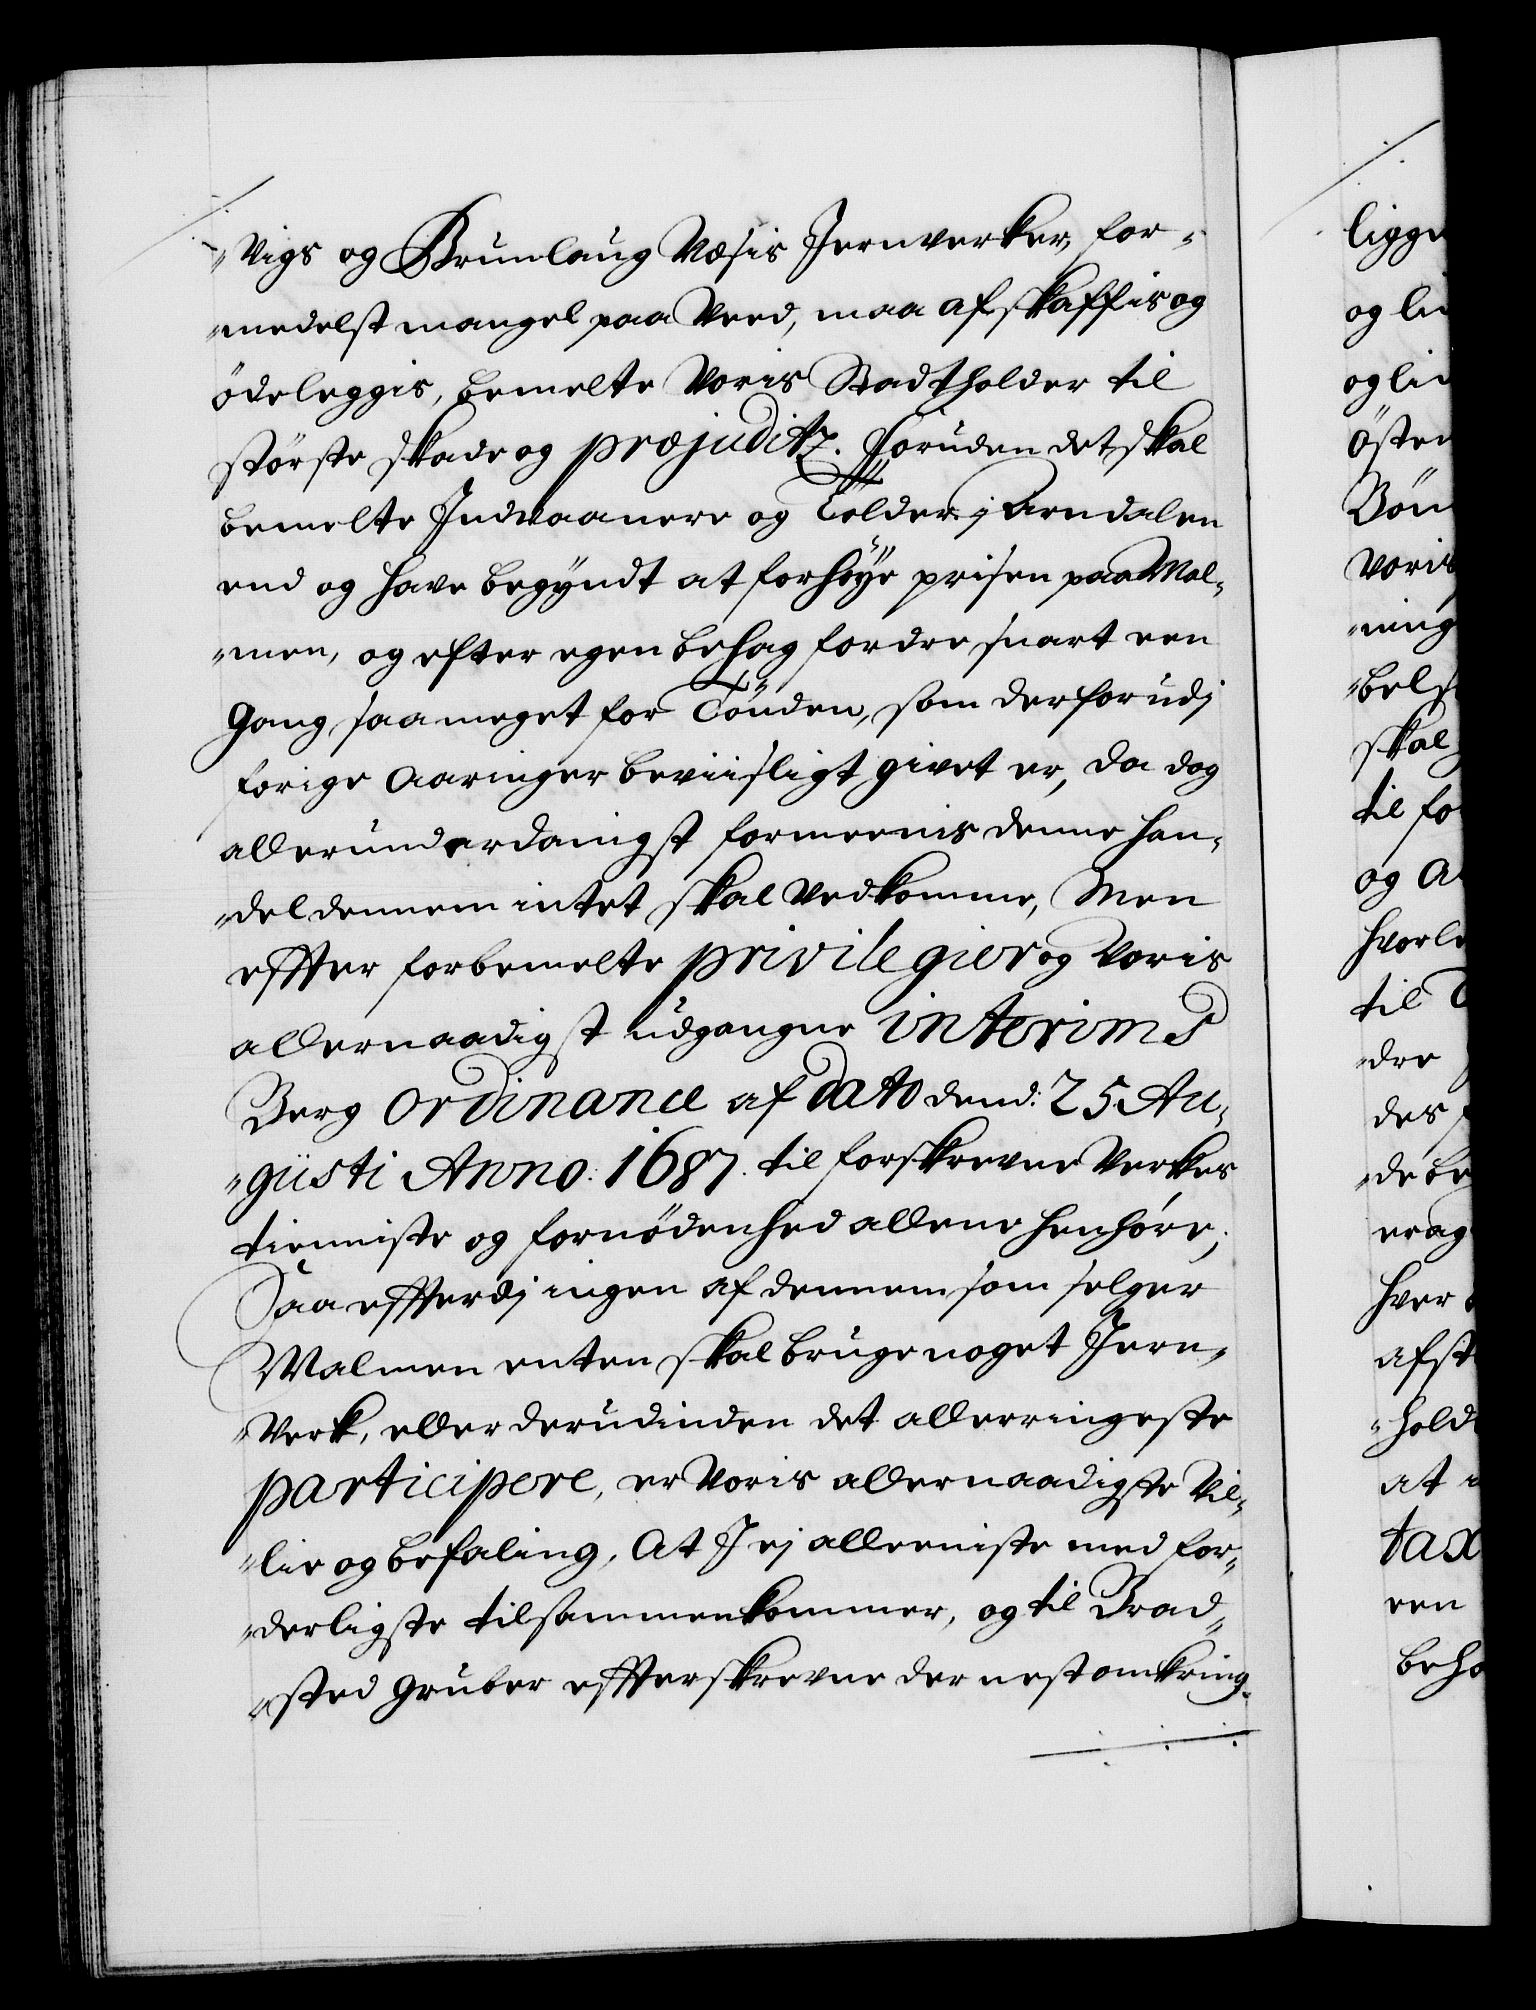 "Vigs og Brunlaug Næsis Jernverker, for-
"medelst mangel paa Veed, maa afskaffis og
ödeleggis, bemelte Voris Stadtholder til
störste skade og præjuditz. Foruden det skal
bemelte Indvaanere og Tolder j Arendalen
end og have begyndt at forhöye prisen paa Mal-
"men, og efter egen behag fordre snart een
Gang saa meget for Tönden, som derfor udj
forige Aaringer beviisligt givet er, da dog
allerunderdanigst formeenis denne han-
"del dennem intet skal Vedkomme, Men
effter forbemelte privilegier og Voris
allernaadigst udgangne interims
Berg ordinance af dato dend: 25 Au-
"gusti Anno: 1687. til forskrevne Verkes
tienniste og fornödenhed allene henhöre;
Saa effterdj ingen af dennem som selger
Malmen enten skal bruge noget Jern-
"Verk, eller derudinden det allerringeste
participere, er Voris allernaadigste Vil-
"lie og befaling, At I ej alleeniste med for-
"derligste tilsammenkommer, og til Brad-
"sted Gruber effterskrevne der nest omkring
ligge
og li
og li
Östen
Bön
Voris
"ning
"bels
skal
til fo
og A
hvorl
til T
"dre
des
"de be
erag
hver
afst
"hold
at
tax
een
beho